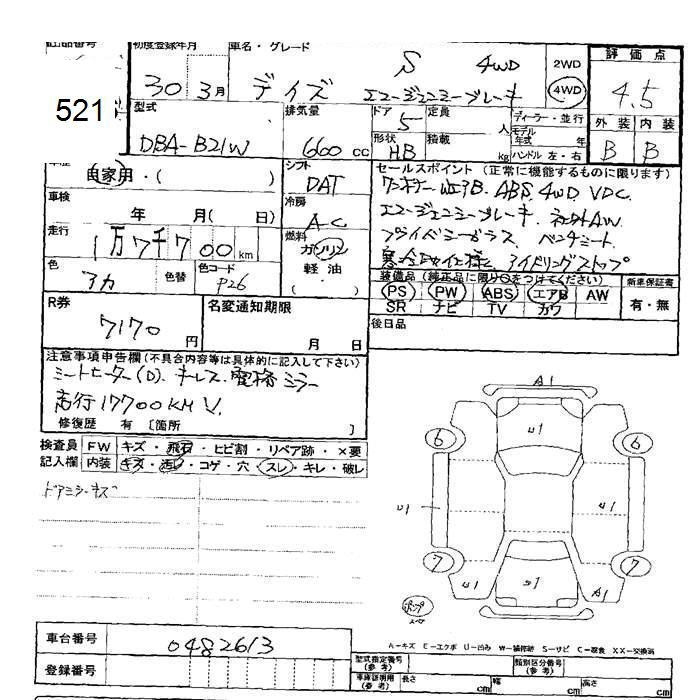 出品番号 初度登録年月 車名・グレード 評価点
521
30 3月 デイズ S 4WD エマージェンシーブレーキ
2WD
4WD
4.5
型式 排気量 ドア 定員 ディーラー・並行 外装 内装
DBA-B21W 660cc 5 人 モデル年式 年 B B
形状 積載
HB kg ハンドル 左・右
自家用・( ) シフト セールスポイント(正常に機能するものに限ります)
DAT ワンオーナー WエアB. ABS. 4WD VDC.
車検 冷房 エマージェンシーブレーキ. 社外AW
年 月( 日) AC プライバシーガラス ベンチシート
走行 燃料 寒冷地仕様 アイドリングストップ
1万7千700km ガソリン
軽油・
色 色替 色コード 装備品(純正品に限り○をつけてください) 新車保証書
アカ P26 PS PW ABS エアB AW 有・無
SR ナビ TV カワ
R券 名変通知期限 後日品
7170円 月 日
注意事項申告欄(不具合内容等は具体的に記入して下さい)
シートヒーター(D). キーレス. 電格ミラー
走行17700KM V.
修復歴 有〔箇所 〕
検査員 FW キズ・飛石・ヒビ割・リペア跡・×要
記入欄 内装 キズ・汚レ・コゲ・穴・スレ・キレ・破レ
A1
U1
6 6
U1 U1
7 7
U1 A1
車台番号 0482613
登録番号
A-キズ E-エクボ U-凹み W-補修跡 S-サビ C-腐食 XX-交換済
型式指定番号(参考) 類別区分番号(参考)
車庫証明用(参考) 長さ cm 幅 cm 高さ cm